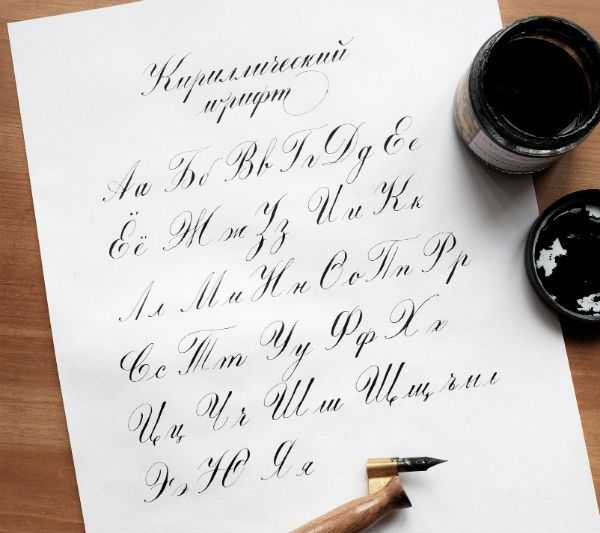 Кириллический
шрифт
Аа Бб Вв Гг Дд Ее
Ёё Жж Зз Ии Кк
Лл Мм Нн Оо Пп Рр
Сс Тт Уу Фф Хх
Цц Чч Шш Щщ ъ ы
Ээ Ю Яя